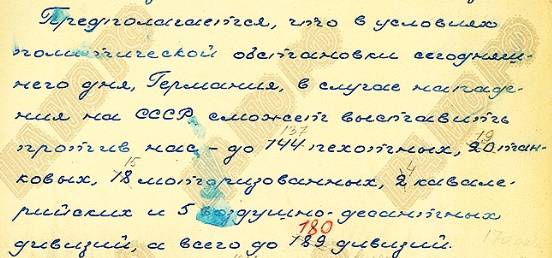 Предполагается, что в условиях
политической обстановки сегодняш-
него дня, Германия, в случае нападе-
ния на СССР, сможет выставить
137
против нас – до 144 пехотных, 19 20 тан-
15 4
ковых, 18 моторизованных, 2 кавале-
рийских и 5 воздушно-десантных
180
дивизий, а всего до 189 дивизий.